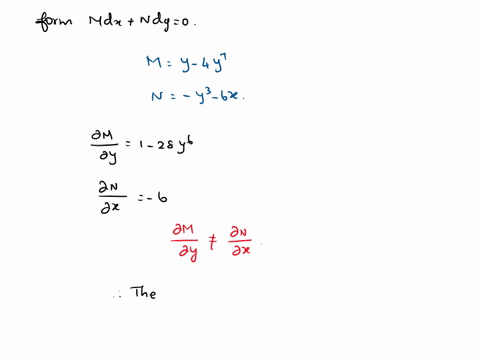 form Mdx + Ndy = 0.
M = y - 4y⁷
N = - y³ - 6x.
∂M/∂y = 1 - 28y⁶
∂N/∂x = - 6
∂M/∂y ≠ ∂N/∂x.
∴ The